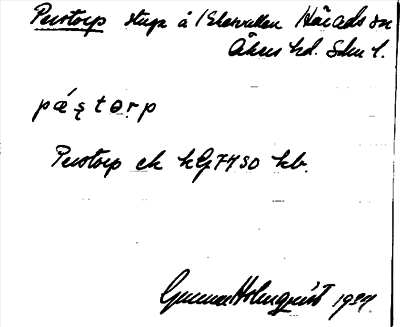 Perstorp stuga å Ekevallen Härads sn
Åkers hd. Söm l.
pǽ̨ştọrp
Perstorp ek hG7450 kb.
Gunnar Holmquist 1989.